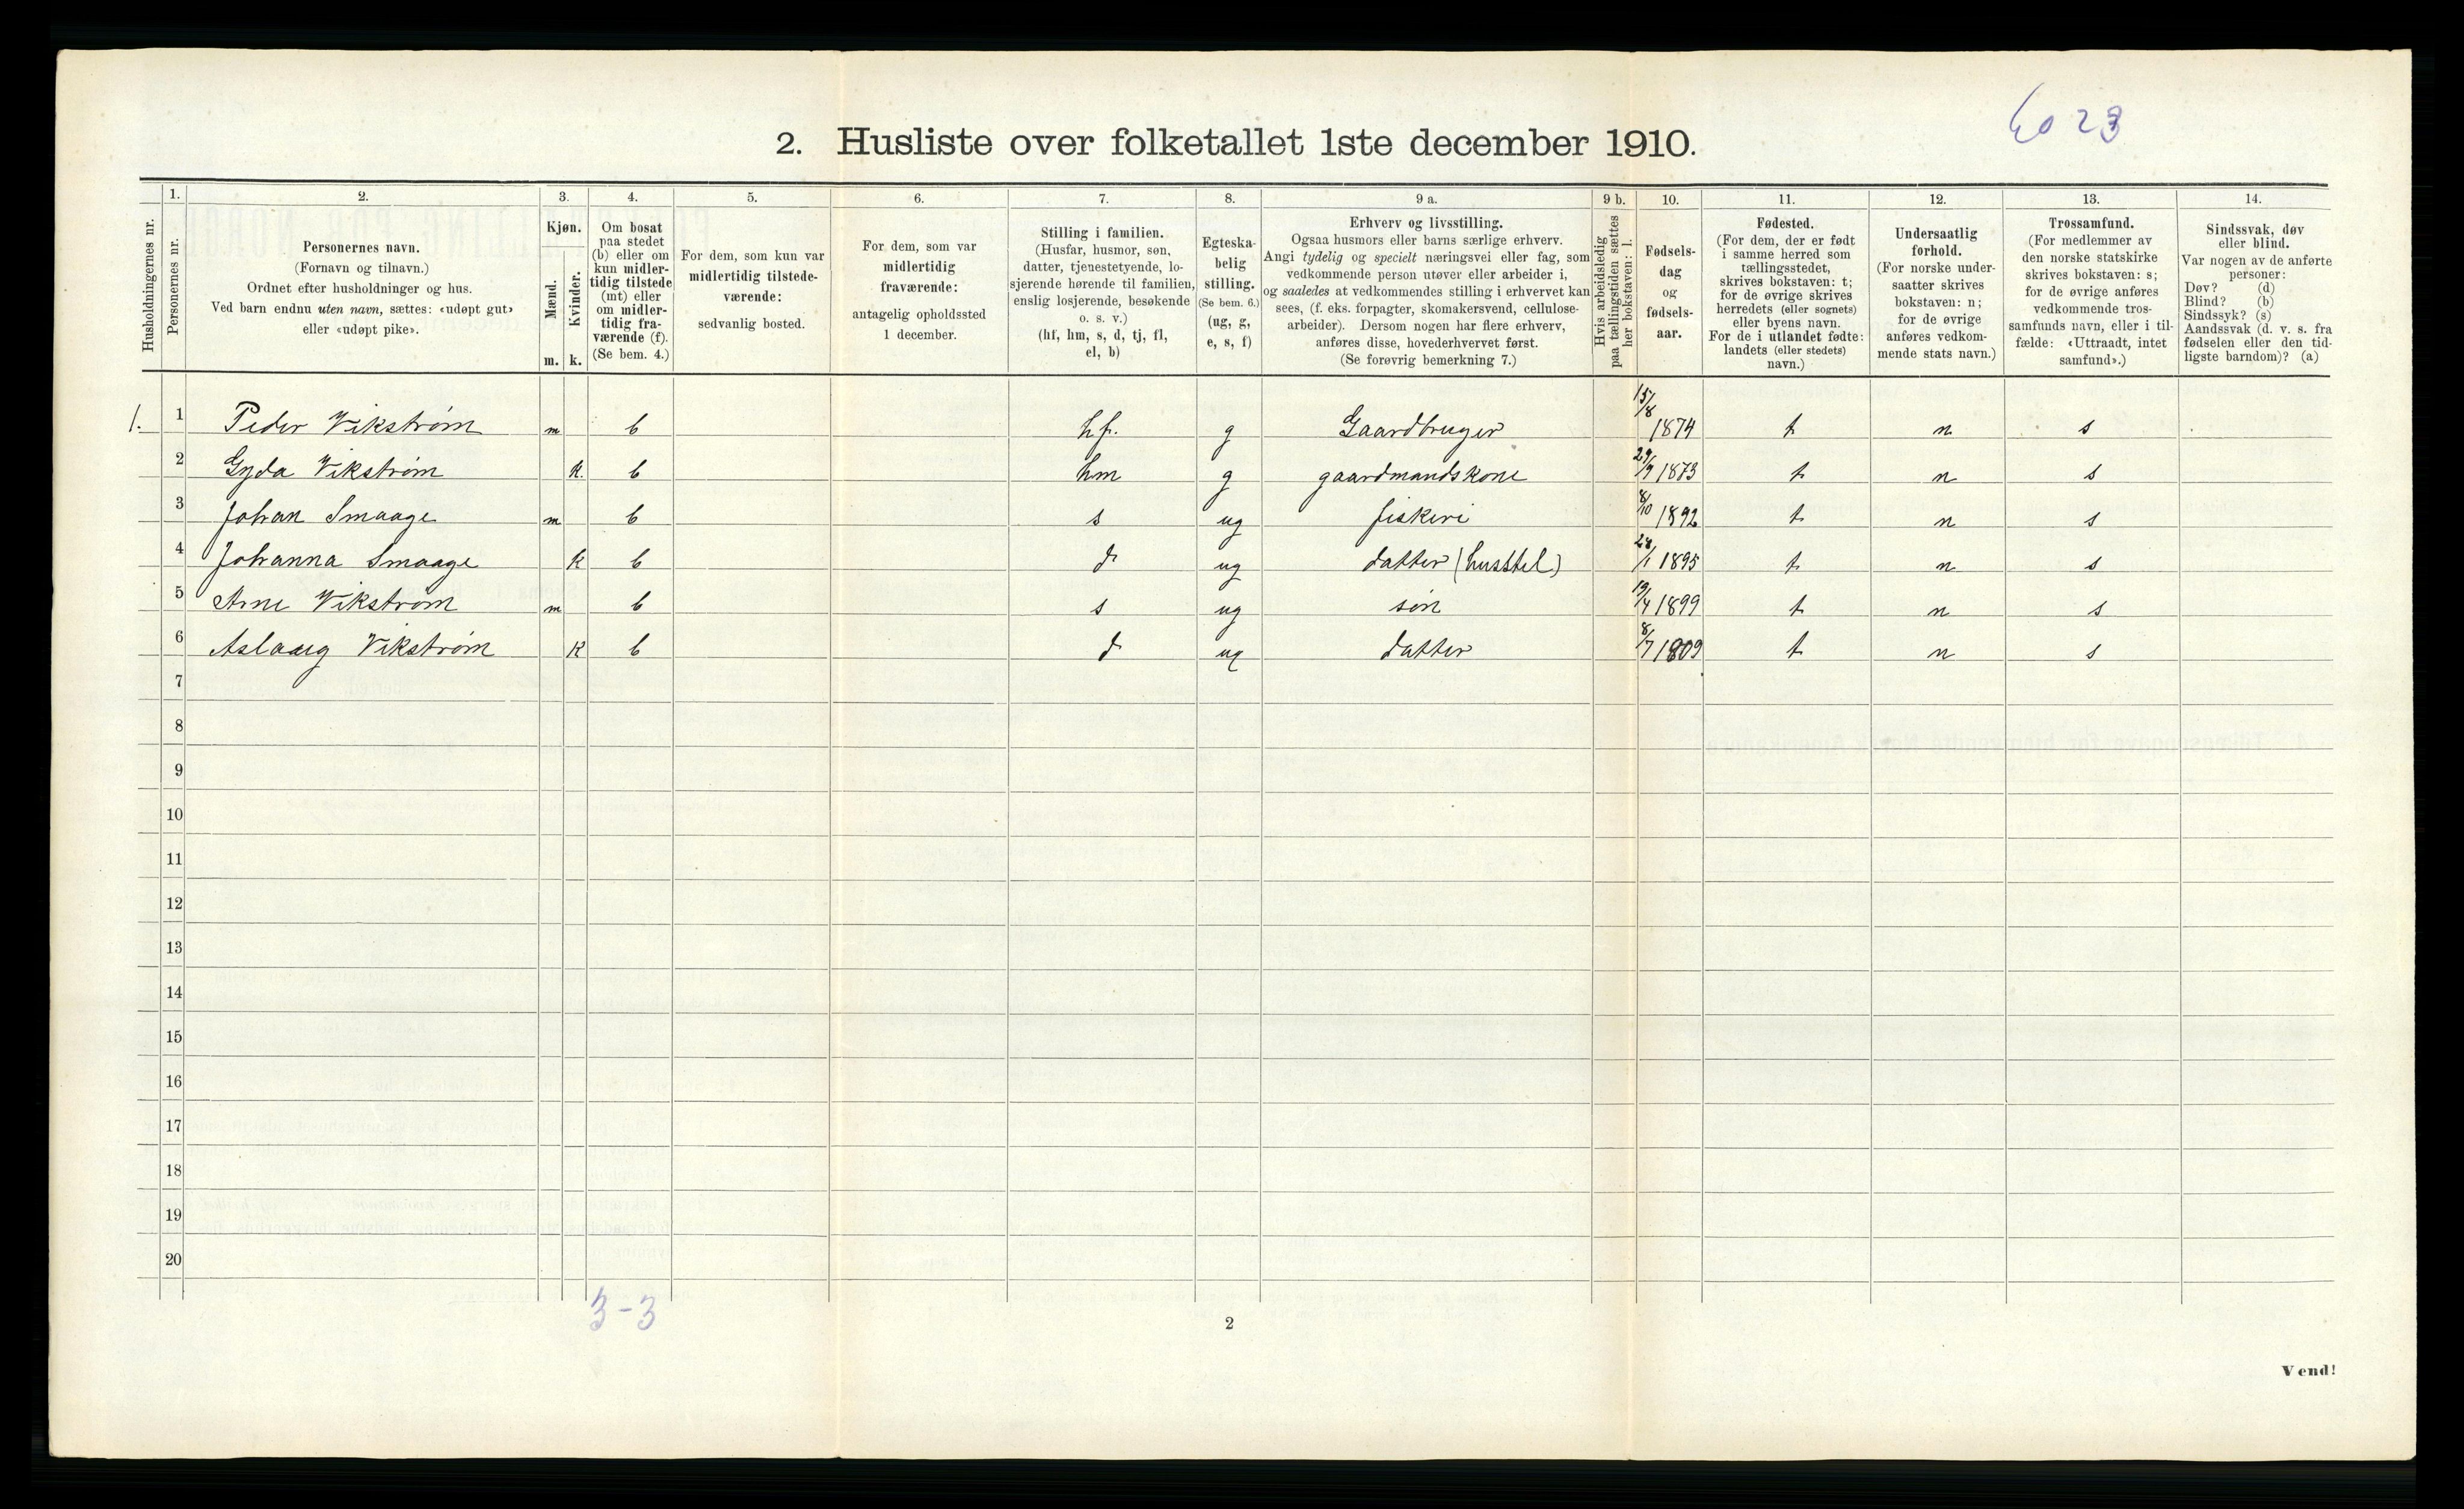 2. Husliste over folketallet 1ste december 1910.
23
Husholdningernes nr.
1. Personernes nr.
2. Personernes navn. (Fornavn og tilnavn.) Ordnet efter husholdninger og hus. Ved barn endnu uten navn, sættes: «udøpt gut» eller «udøpt pike».
3. Kjøn. Mænd. m. Kvinder. k.
4. Om bosat paa stedet (b) eller om kun midlertidig tilstede (mt) eller om midlertidig fraværende (f). (Se bem. 4.)
5. For dem, som kun var midlertidig tilstedeværende: sedvanlig bosted.
6. For dem, som var midlertidig fraværende: antagelig opholdssted 1 december.
7. Stilling i familien. (Husfar, husmor, søn, datter, tjenestetyende, losjerende hørende til familien, enslig losjerende, besøkende o. s. v.) (hf, hm, s, d, tj, fl, el, b)
8. Egteskabelig stilling. (Se bem. 6.) (ug, g, e, s, f)
9 a. Erhverv og livsstilling. Ogsaa husmors eller barns særlige erhverv. Angi tydelig og specielt næringsvei eller fag, som vedkommende person utøver eller arbeider i, og saaledes at vedkommendes stilling i erhvervet kan sees, (f. eks. forpagter, skomakersvend, cellulosearbeider). Dersom nogen har flere erhverv, anføres disse, hovederhvervet først. (Se forøvrig bemerkning 7.)
9 b. Hvis arbeidsledig paa tællingstiden sættes her bokstaven: l.
10. Fødselsdag og fødselsaar.
11. Fødested. (For dem, der er født i samme herred som tællingsstedet, skrives bokstaven: t; for de øvrige skrives herredets (eller sognets) eller byens navn. For de i utlandet fødte: landets (eller stedets) navn.)
12. Undersaatlig forhold. (For norske undersaatter skrives bokstaven: n; for de øvrige anføres vedkommende stats navn.)
13. Trossamfund. (For medlemmer av den norske statskirke skrives bokstaven: s; for de øvrige anføres vedkommende trossamfunds navn, eller i tilfælde: «Uttraadt, intet samfund».)
14. Sindssvak, døv eller blind. Var nogen av de anførte personer: Døv? (d) Blind? (b) Sindssyk? (s) Aandssvak (d. v. s. fra fødselen eller den tidligste barndom)? (a)
1. 1 Peder Vikstrøm m b hf. g Gaardbruger 15/8 1874 t n s
2 Gyda Vikstrøm k. b hm g gaardmandskone 29/9 1873 t n s
3 Johan Smaage m b s ug fiskeri 8/10 1892 t n s
4 Johanna Smaage k b d ug datter (husstel) 28/1 1895 t n s
5 Arne Vikstrøm m b s ug søn 19/4 1899 t n s
6 Aslaug Vikstrøm k b d ug datter 8/7 1909 t n s
7
8
9
10
11
12
13
14
15
16
17
18
19
20
3-3
2
Vend!